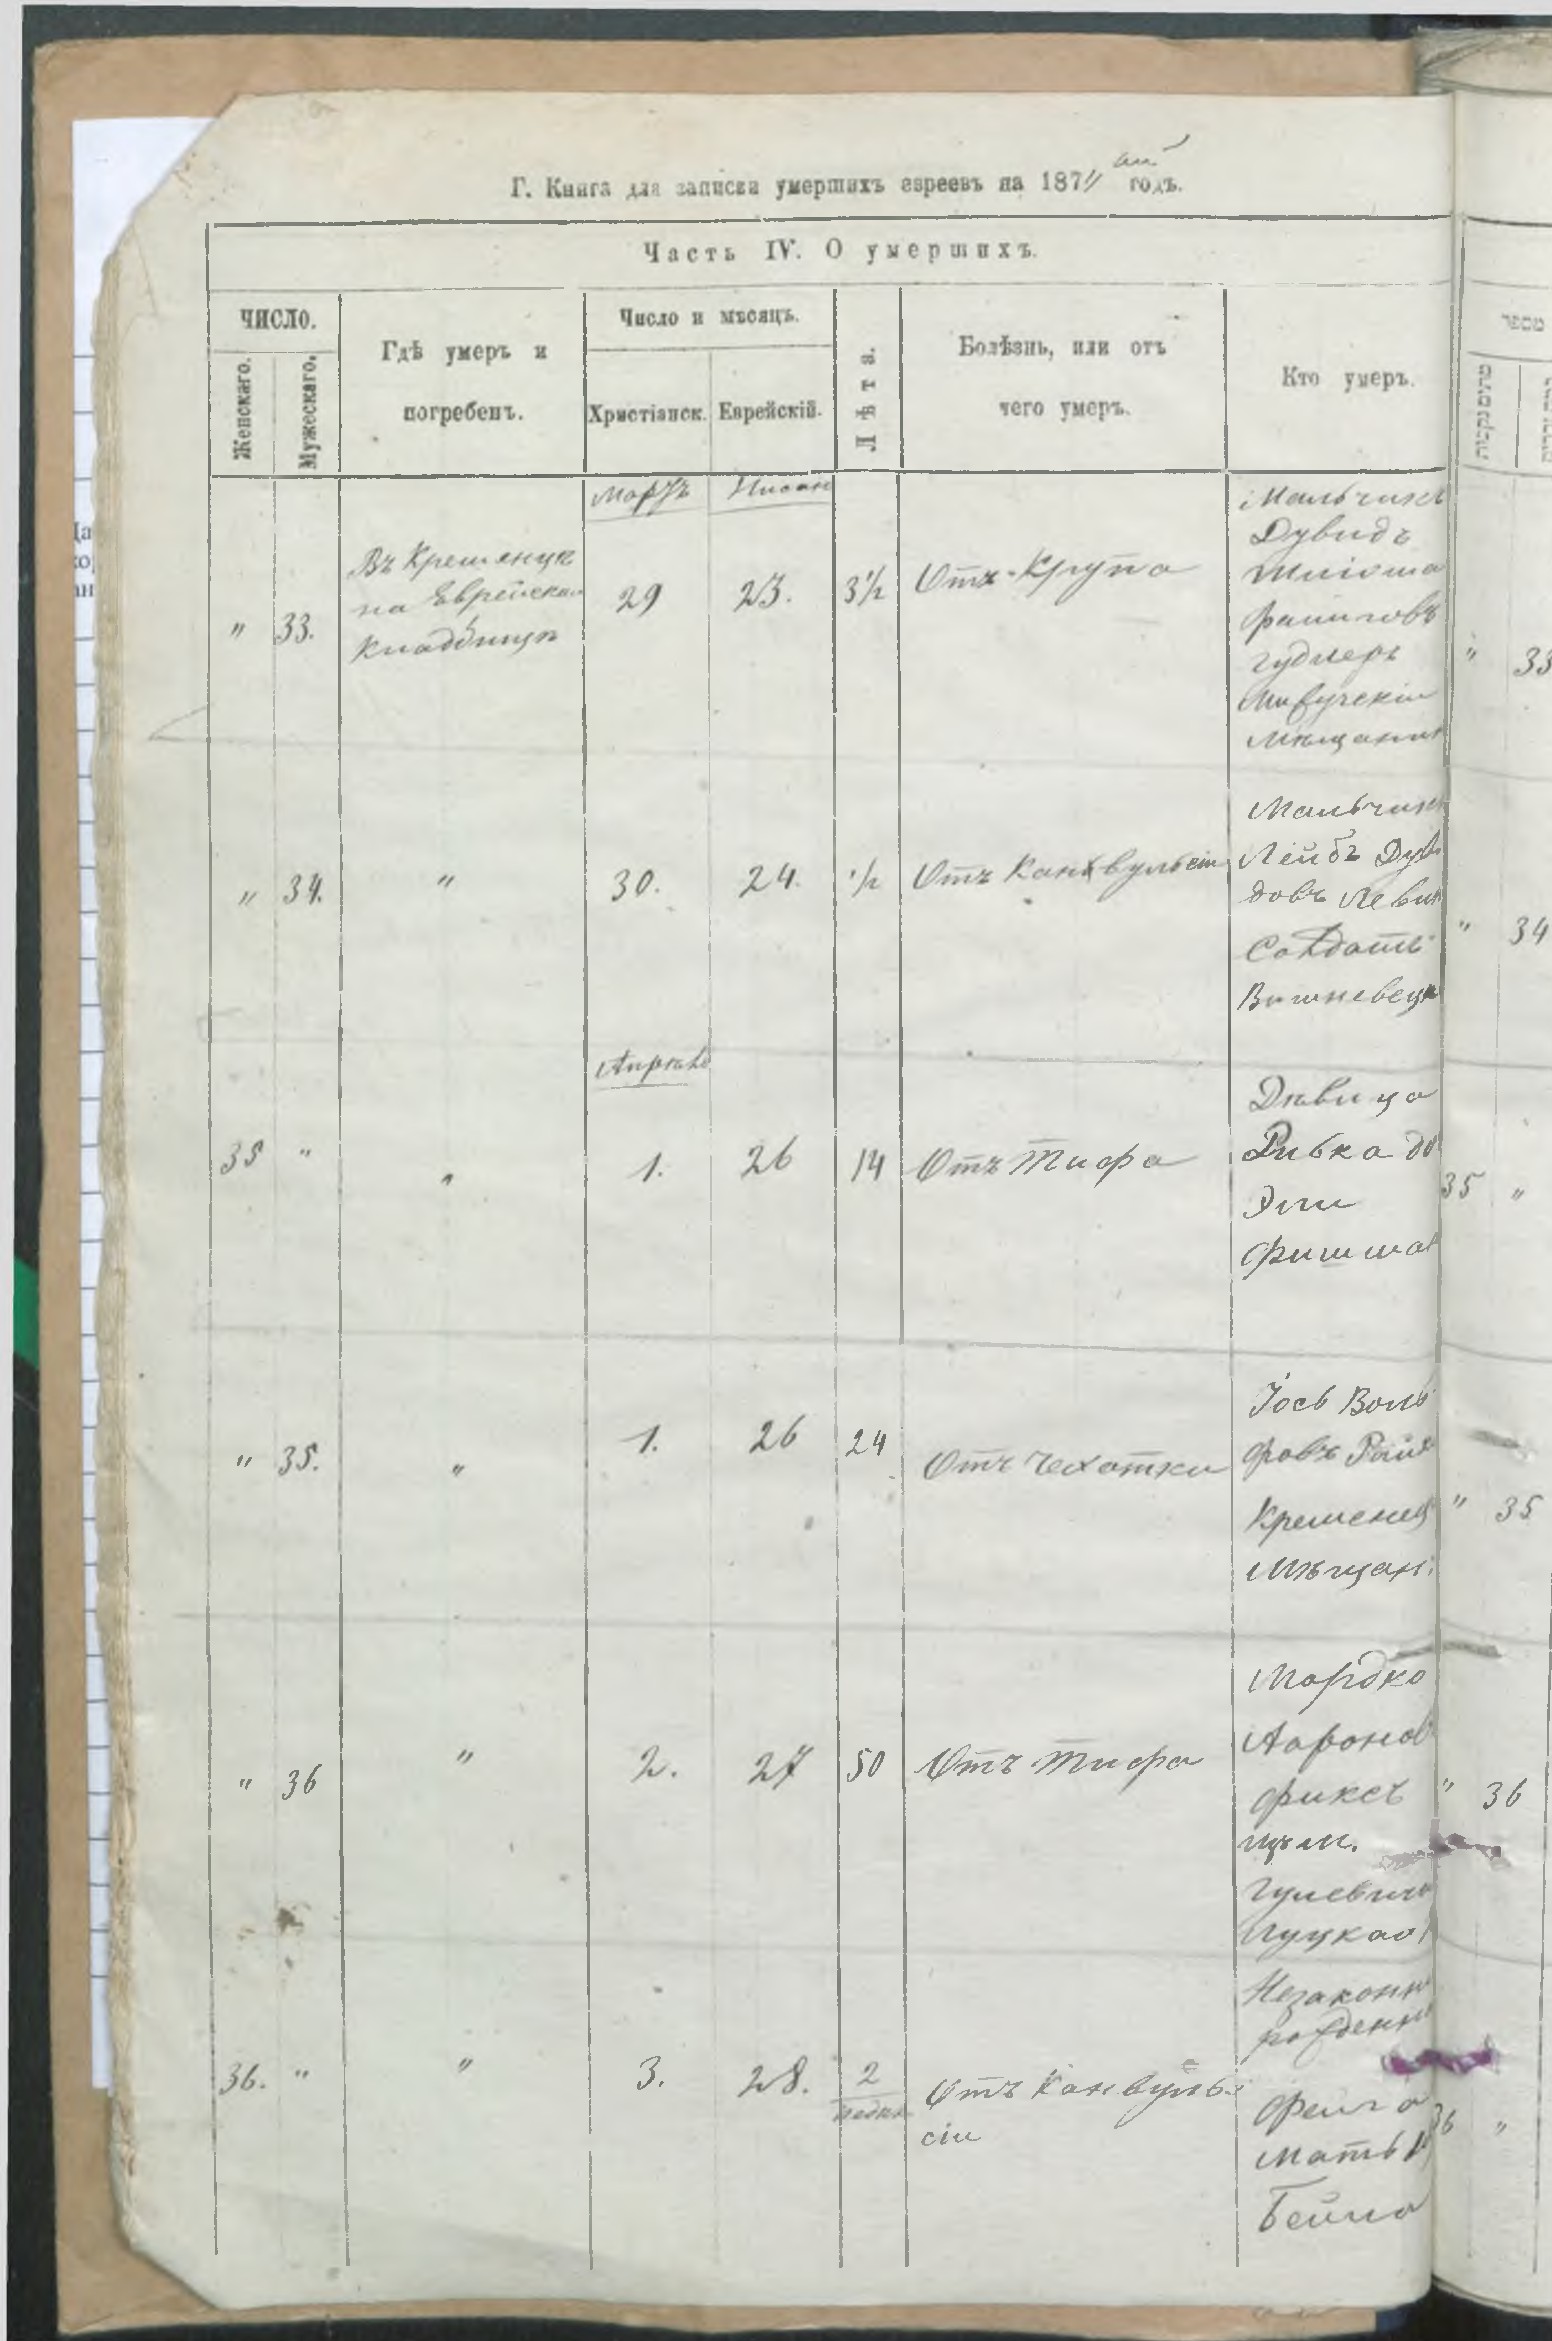 Г. Книга для записки умершихъ евреевъ на 187 годъ.
Часть IV. О умершихъ.
ЧИСЛО.
Женскаго.
Мужескаго.
Гдѣ умеръ и
погребенъ.
Число и мѣсяцъ.
Христіанск.
Еврейскій.
Лѣта.
Болѣзнь, или отъ
чего умеръ.
Кто умеръ.
מספר
Мартъ Нисанъ
" 33.
Въ Кременцѣ
на Еврейском
Кладбищѣ
29 23. 3½ Отъ Крупа
Мальчикъ
Дувидъ
Шліома
Гудлеръ
Мѣщанинъ
" 33
" 34. " 30. 24. ½ Отъ Канвульсіи
Мальчикъ
Лейбъ Дуви
довъ Левин
Солдатъ
Вишневецк
" 34
Апрѣль
35 " " 1. 26 14 Отъ Тифа
Дѣвица
Ривка до
Эли
Фишма
35 "
" 35. " 1. 26 24 Отъ Чехотки
Іось Воль
фовъ Рай
Кременец
Мѣщан.
" 35
" 36 " 2. 27 50 Отъ Тифа
Мордко
Аароновъ
Фиксъ
Гулевича
Луцкаго
" 36
36. " " 3. 28. 2
недѣли
Отъ Канвуль-
сіи
Незаконно
рожденн
Фейга
Мать
Бейла
36 "